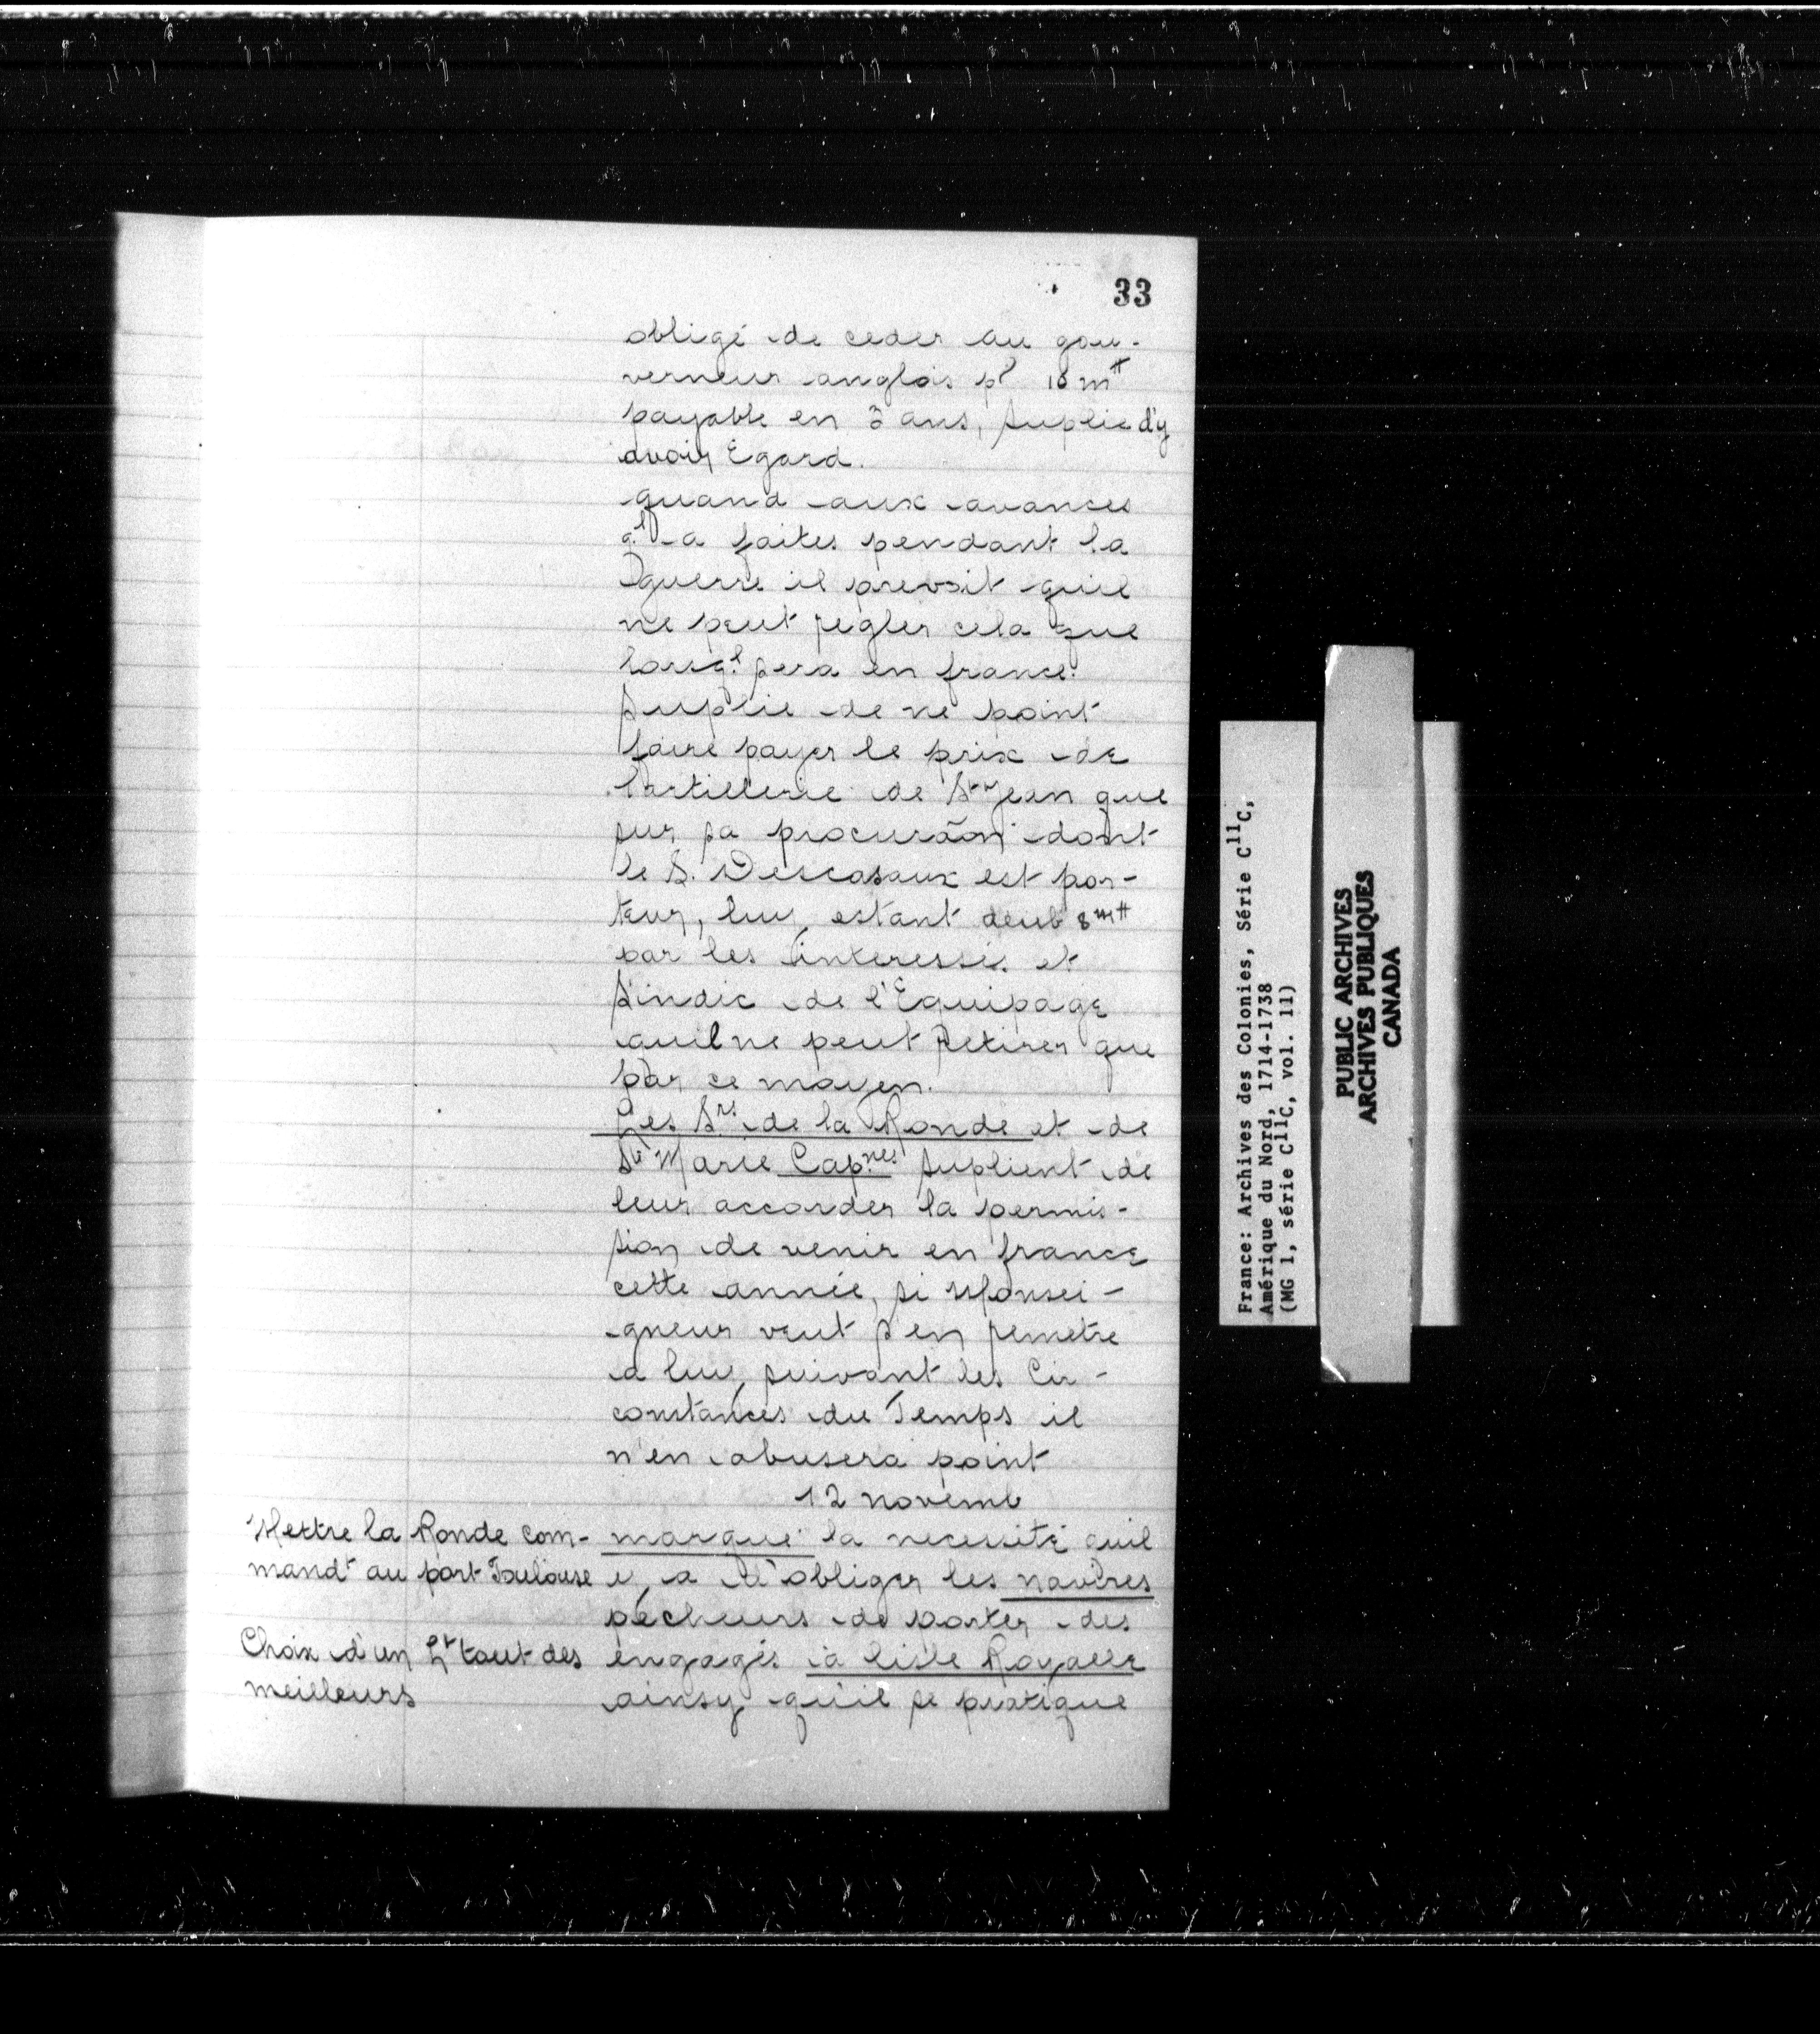 33
obligé de ceder au gou-
verneur anglois pr 16 m₶
payable en 3 ans, suplie d'y
avoir Egard.
quand aux avances
ql a faites pendant la
guerre il prevoit quil
ne peut regler cela que
lorsql sera en france.
suplie de ne point
faire payer le prix de
lartillerie de St Jean que
sur sa procurãon dont
le S. Descasaux est por-
teur, luy estant deub 8 m₶
par les interessés et
sindic de l'Equipage
quil ne peut Retirer que
par ce moyen.
Les Srs de la Ronde et de
Ste Marie Capnes suplient de
leur accorder la permis-
sion de venir en france
cette année, si Monsei-
gneur veut s'en remetre
a luy suivant les Cir-
constances du Temps il
n'en abusera point
12 novemb
Mettre la Ronde com-
mandt au port Toulouse
Choix d'un Lt tout des
meilleurs
marque la necessité quil
y a d'obliger les navires
pécheurs de porter des
engagés à lisle Royalle
ainsy qu'il se pratique
France: Archives des Colonies, Série C11C,
Amérique du Nord, 1714-1738
(MG 1, série C11C, vol. 11)
PUBLIC ARCHIVES
ARCHIVES PUBLIQUES
CANADA